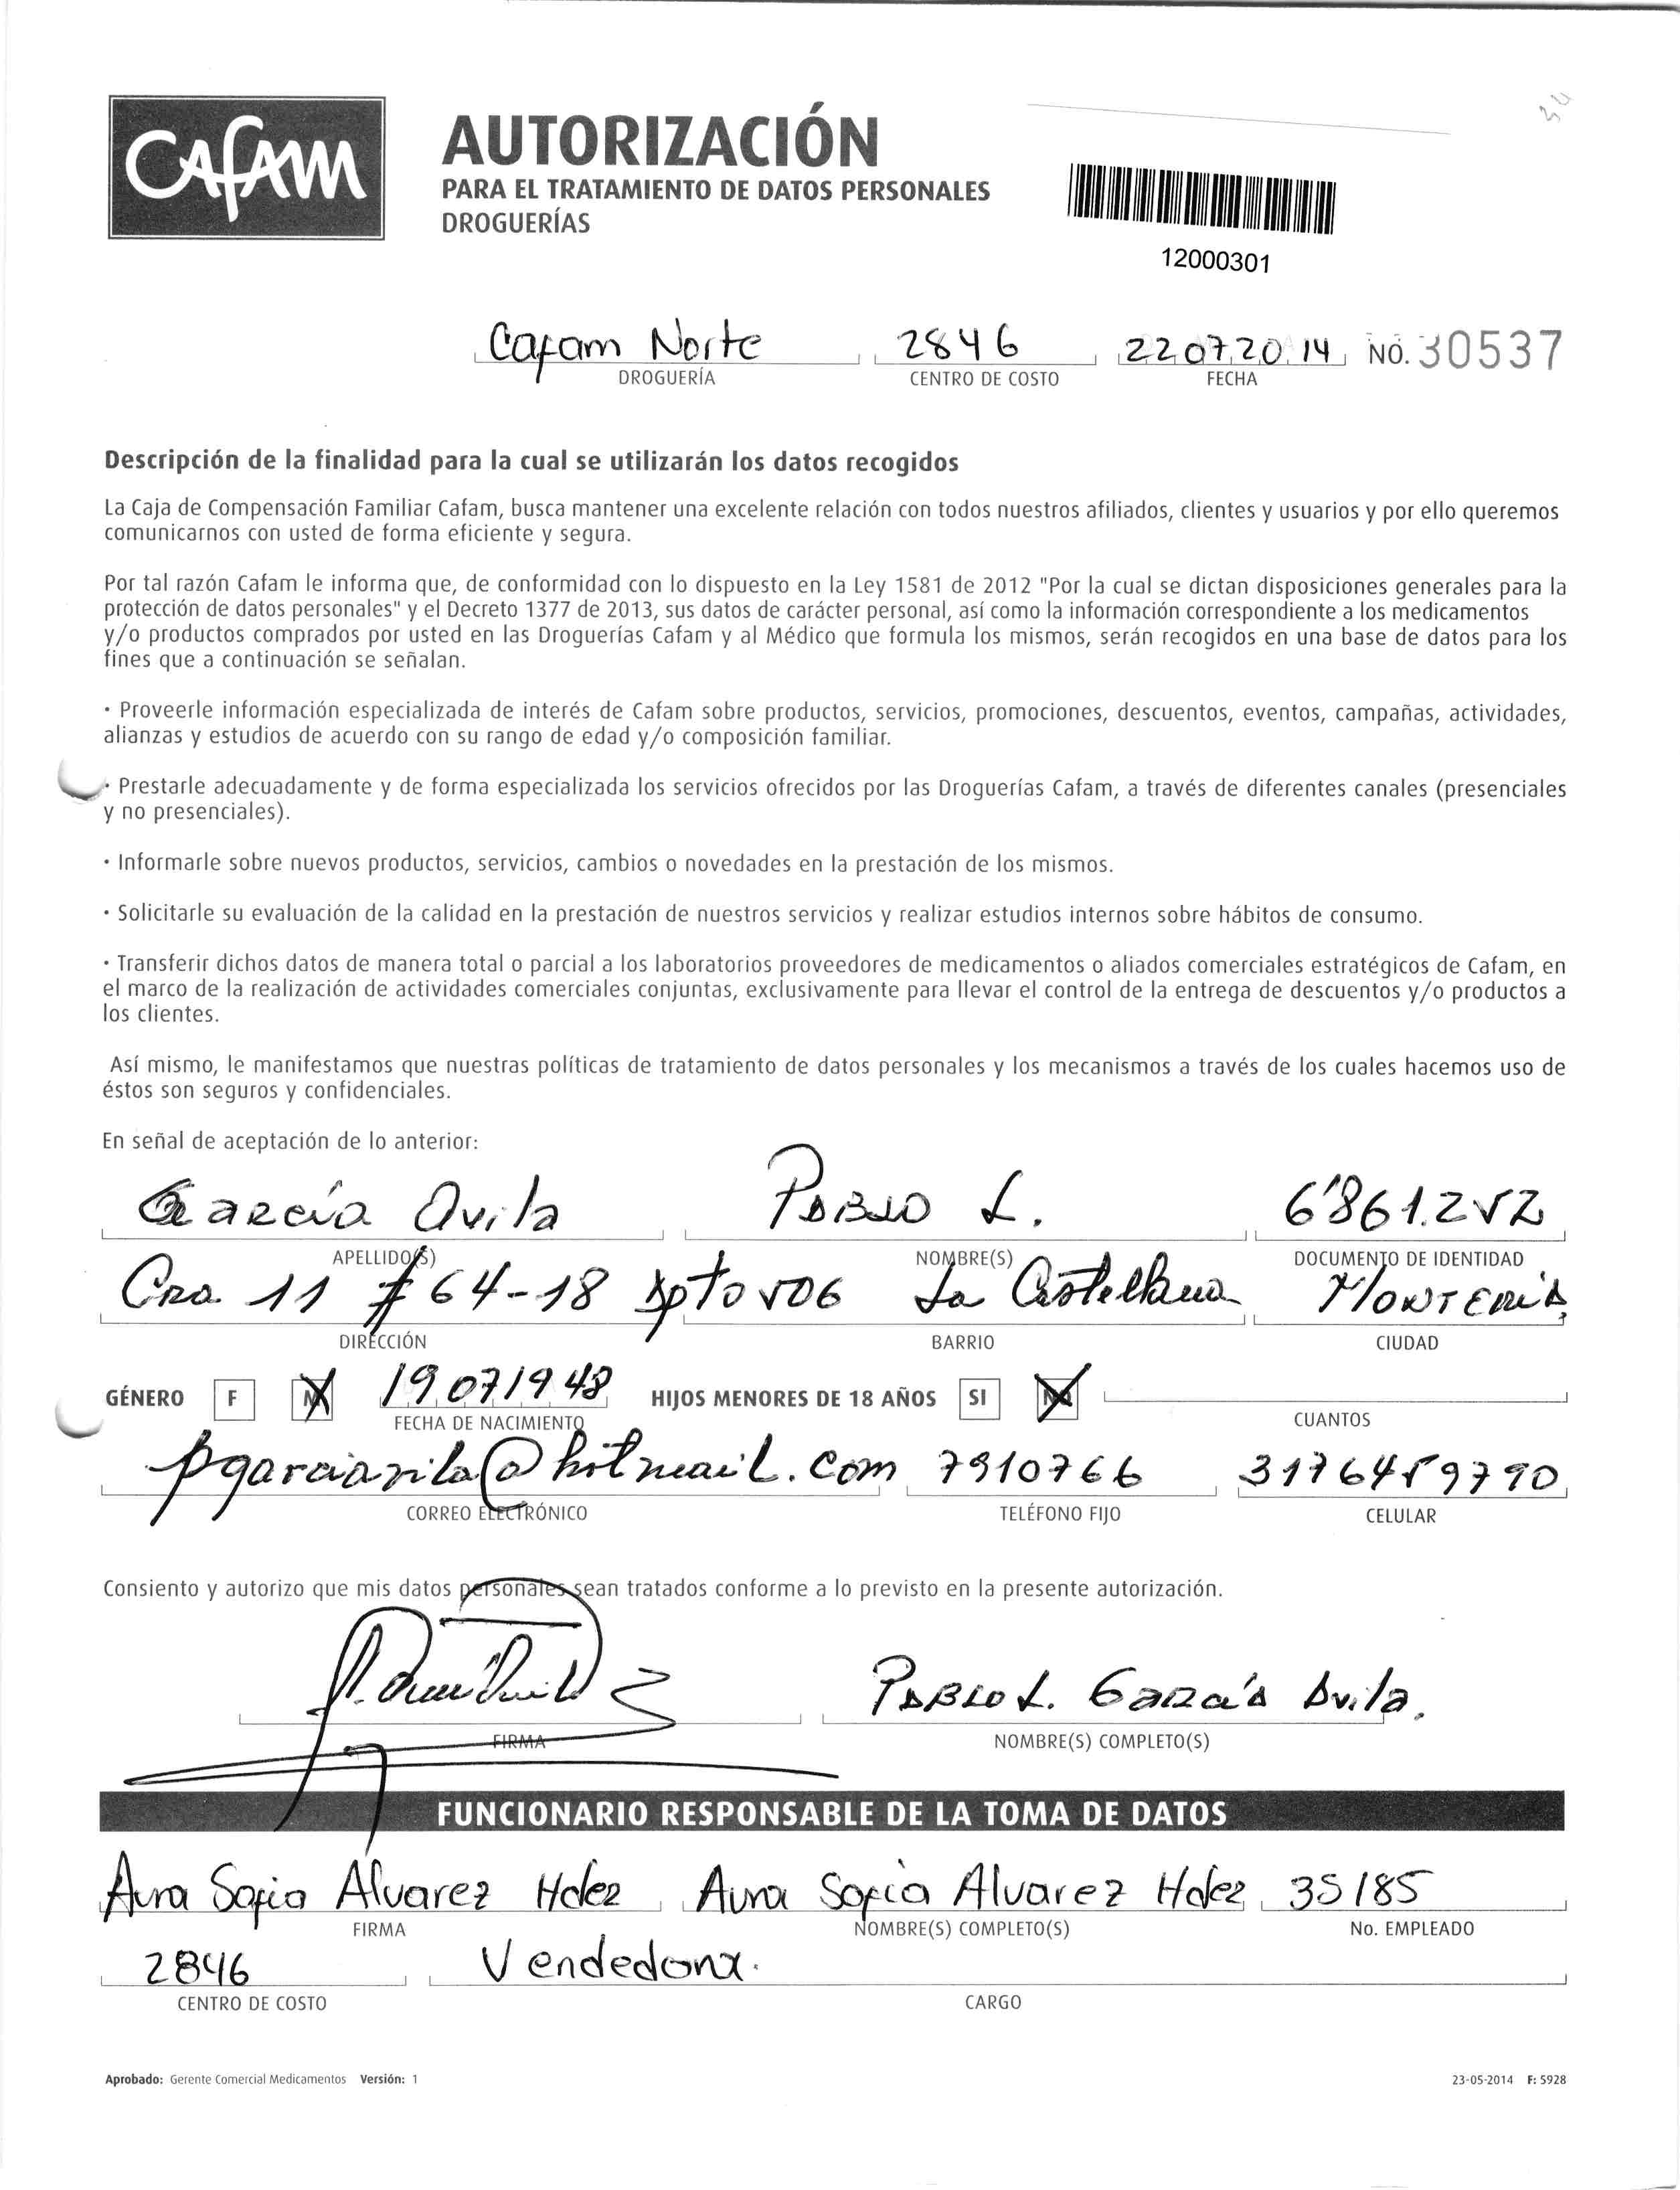 Cafam
AUTORIZACIÓN
PARA EL TRATAMIENTO DE DATOS PERSONALES
DROGUERÍAS
12000301
Cafam Norte 2846 22 07 20 14 NO. 30537
DROGUERÍA CENTRO DE COSTO FECHA
Descripción de la finalidad para la cual se utilizarán los datos recogidos
La Caja de Compensación Familiar Cafam, busca mantener una excelente relación con todos nuestros afiliados, clientes y usuarios y por ello queremos
comunicarnos con usted de forma eficiente y segura.
Por tal razón Cafam le informa que, de conformidad con lo dispuesto en la Ley 1581 de 2012 "Por la cual se dictan disposiciones generales para la
protección de datos personales" y el Decreto 1377 de 2013, sus datos de carácter personal, así como la información correspondiente a los medicamentos
y/o productos comprados por usted en las Droguerías Cafam y al Médico que formula los mismos, serán recogidos en una base de datos para los
fines que a continuación se señalan.
· Proveerle información especializada de interés de Cafam sobre productos, servicios, promociones, descuentos, eventos, campañas, actividades,
alianzas y estudios de acuerdo con su rango de edad y/o composición familiar.
· Prestarle adecuadamente y de forma especializada los servicios ofrecidos por las Droguerías Cafam, a través de diferentes canales (presenciales
y no presenciales).
· Informarle sobre nuevos productos, servicios, cambios o novedades en la prestación de los mismos.
· Solicitarle su evaluación de la calidad en la prestación de nuestros servicios y realizar estudios internos sobre hábitos de consumo.
· Transferir dichos datos de manera total o parcial a los laboratorios proveedores de medicamentos o aliados comerciales estratégicos de Cafam, en
el marco de la realización de actividades comerciales conjuntas, exclusivamente para llevar el control de la entrega de descuentos y/o productos a
los clientes.
Así mismo, le manifestamos que nuestras políticas de tratamiento de datos personales y los mecanismos a través de los cuales hacemos uso de
éstos son seguros y confidenciales.
En señal de aceptación de lo anterior:
García Avila Pablo L. 6'861.252
APELLIDO(S) NOMBRE(S) DOCUMENTO DE IDENTIDAD
Cra 11 # 64-18 Apto 506 La Castellana Montería
DIRECCIÓN BARRIO CIUDAD
GÉNERO F M 19 07 1948 HIJOS MENORES DE 18 AÑOS SI NO
FECHA DE NACIMIENTO CUANTOS
pgarciavila@hotmail.com 7910766 3176459790
CORREO ELECTRÓNICO TELÉFONO FIJO CELULAR
Consiento y autorizo que mis datos personales sean tratados conforme a lo previsto en la presente autorización.
Pablo L. García Avila.
FIRMA NOMBRE(S) COMPLETO(S)
FUNCIONARIO RESPONSABLE DE LA TOMA DE DATOS
Aura Sofia Alvarez Hdez Aura Sofia Alvarez Hdez 35185
FIRMA NOMBRE(S) COMPLETO(S) No. EMPLEADO
2846 Vendedora.
CENTRO DE COSTO CARGO
Aprobado: Gerente Comercial Medicamentos Versión: 1 23-05-2014 F: 5928